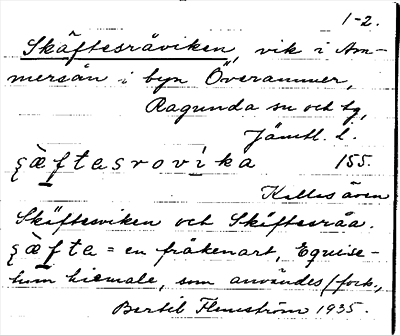 1-2.
Skäftesråviken, vik i Am-
mersån i byn Överammer,
Ragunda sn och tg,
Jämtl. l.
ʂæftasrovika 155.
Kallas även
Skäftesviken och Skäftesråa.
ʂæfta = en fräkenart, Equise-
tum hiemale, som användes förr,
Bertil Flemström 1935.